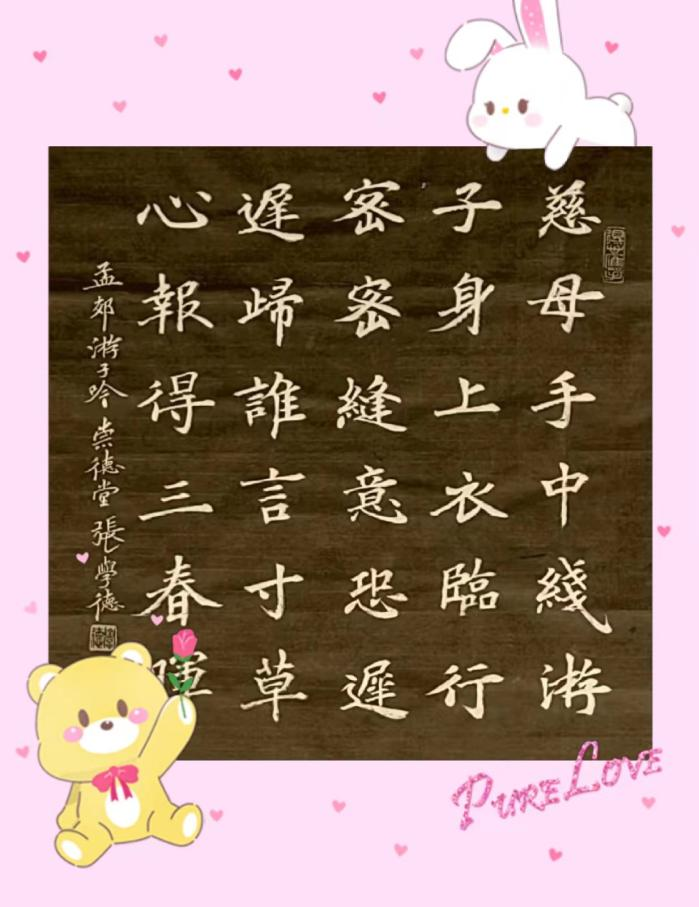 慈母手中綫游
子身上衣臨行
密密縫意恐遲
遲歸誰言寸草
心報得三春暉
孟郊游子吟 崇德堂 張學德
PURE LOVE